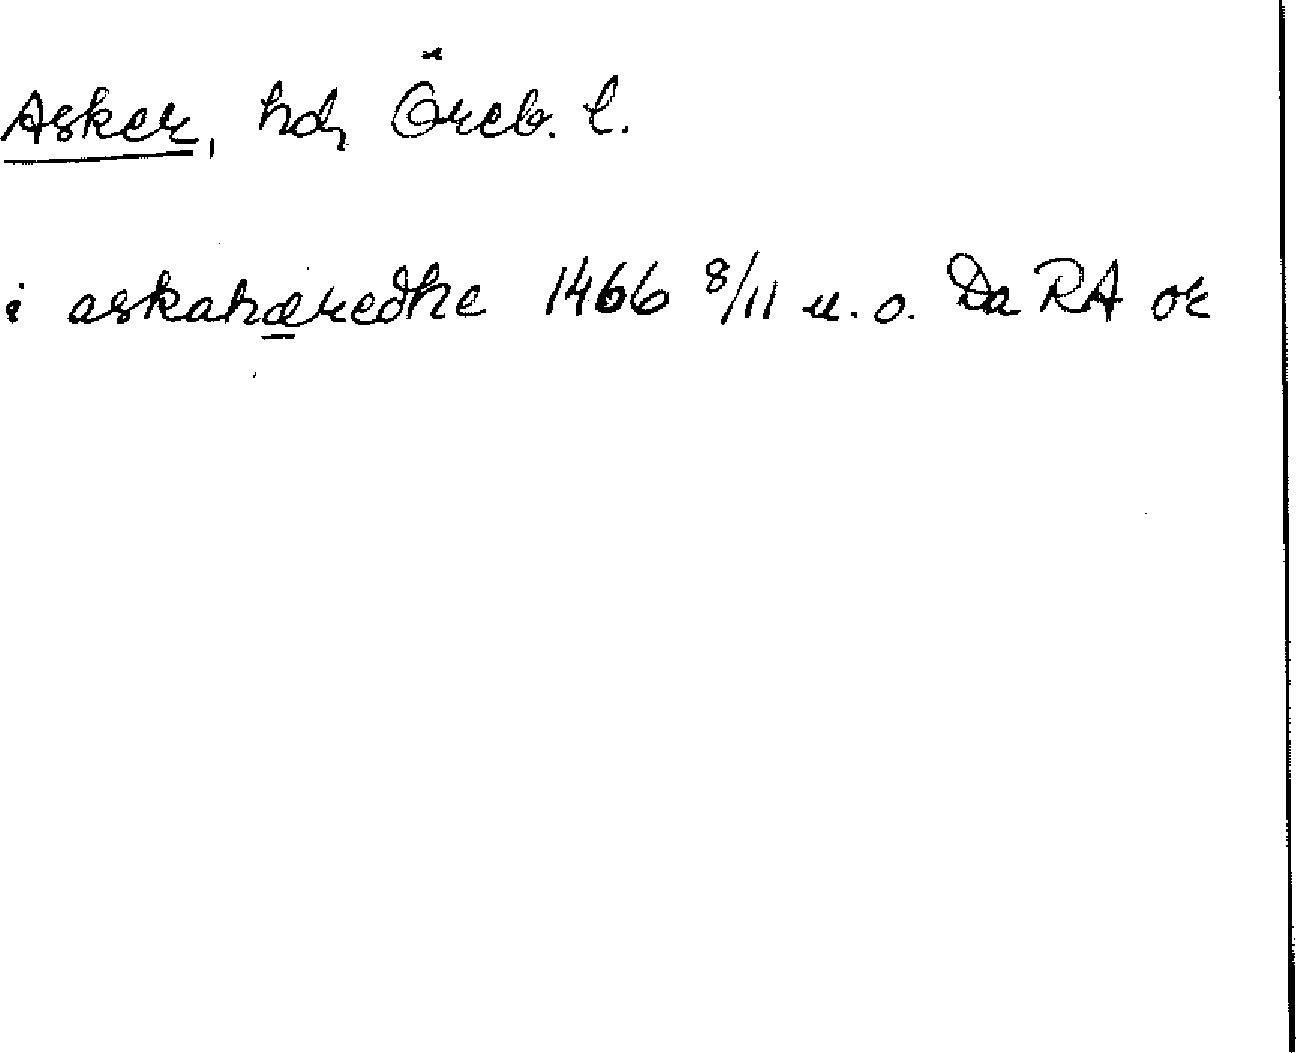 Asker, hd, Öreb. l.
i askahæredhe 1466 8/11 u.o. Da RA or